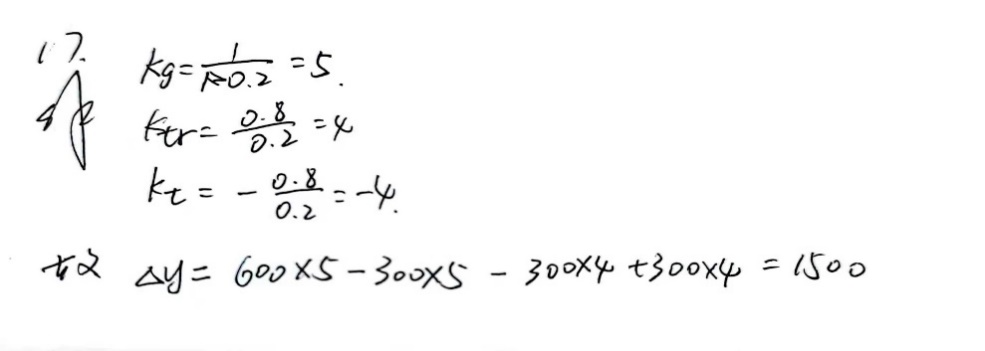 (1).
解
kg = 1/0.2 = 5.
ktr = 0.8/0.2 = 4
kt = - 0.8/0.2 = -4.
Δy = 600×5 - 300×5 - 300×4 + 300×4 = 1500